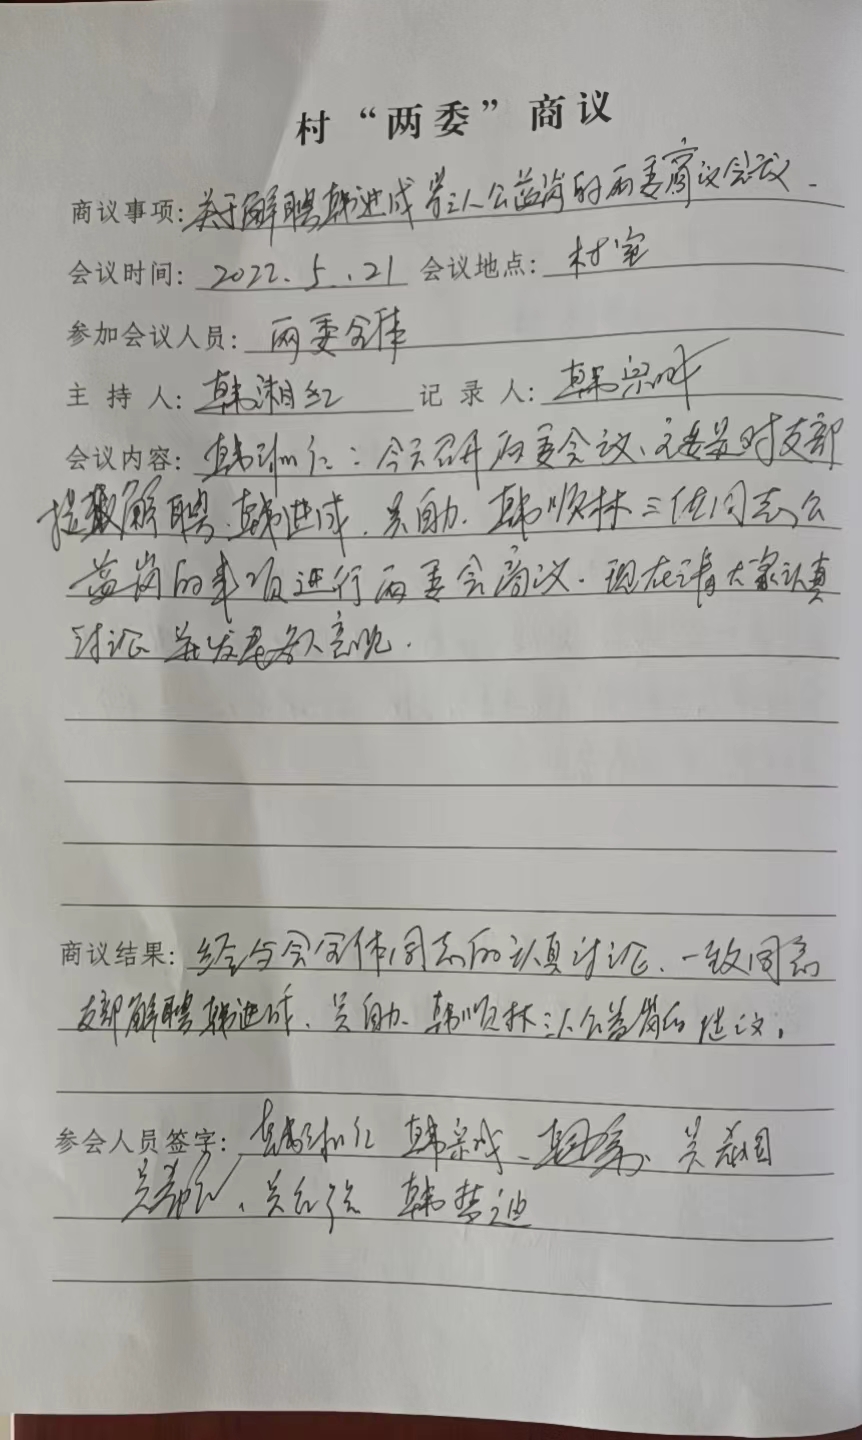 村“两委”商议
商议事项：关于解聘韩进成等三人公益岗的两委商议会议.
会议时间：2022.5.21 会议地点：村室
参加会议人员：两委全体
主持人：韩湘红 记录人：韩宗成
会议内容：韩：今天召开两委会议、主要是对支部
提议解聘、韩进成、吴自助、韩顺林三位同志公
益岗的事项进行两委会商议. 现在请大家认真
讨论 并发表各人意见.
商议结果：经与会全体同志的认真讨论、一致同意
支部解聘韩进成、吴自助、韩顺林三人公益岗的建议。
参会人员签字：韩宗成、吴
吴、吴红 韩梦迪